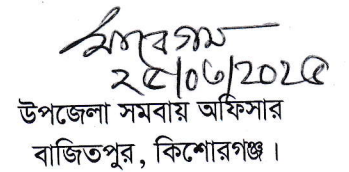 ২৫/০৬/2025
উপজেলা সমবায় অফিসার
বাজিতপুর, কিশোরগঞ্জ।